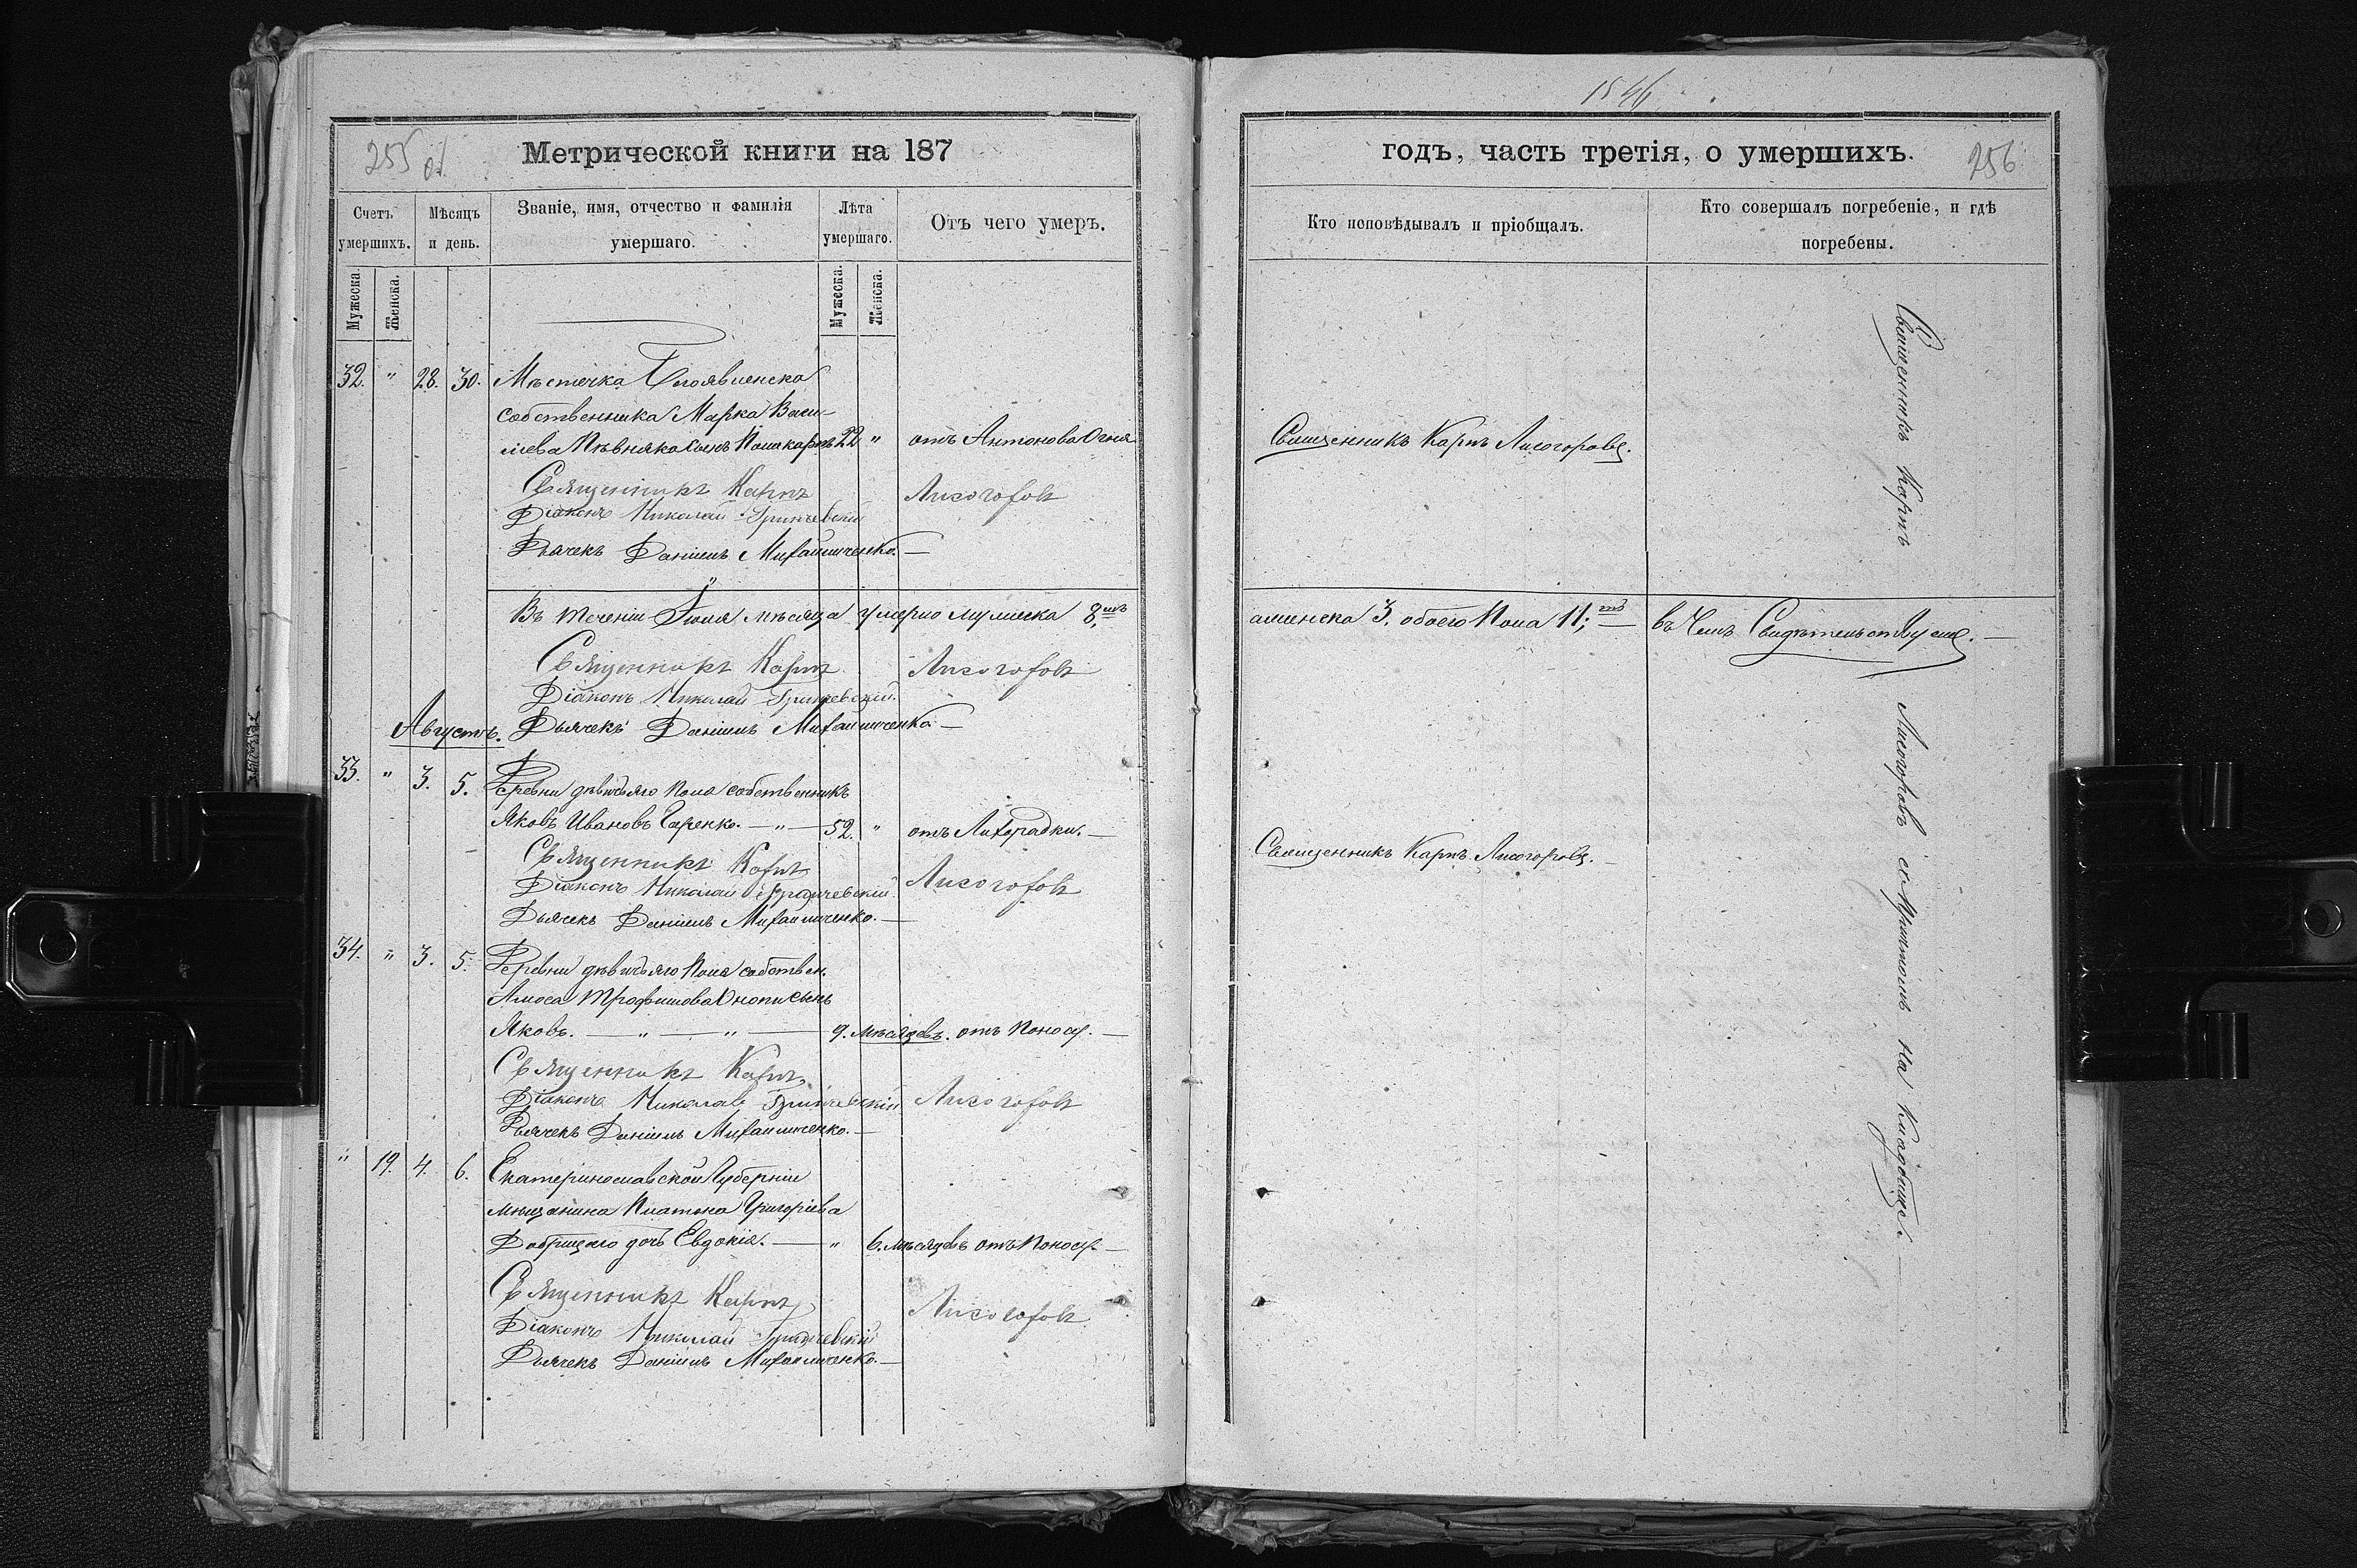 255 об
Метрической книги на 187
Счетъ умершихъ.
Мѣсяцъ и день.
Званіе, имя, отчество и фамилія умершаго.
Лѣта умершаго.
Отъ чего умеръ.
Мужеска.
Женска.
Мужеска.
Женска.
32. " 28. 30. Мѣстечка Богоявленска
собственника Марка Васи-
лева Пѣвняка сынъ Поликарпъ 22 " отъ Антонова Огня
Священникъ Карпъ Лисогоровъ
Діаконъ Николай
Дьячекъ Даніилъ Михайличенко. —
Въ теченіи Іюля мѣсяца умерло мужеска 8,
Священникъ Карпъ Лисогоровъ
Діаконъ Николай
Августъ. Дьячекъ Даніилъ Михайличенко —
33. " 3. 5. Деревни собственникъ
Яковъ Ивановъ — " — 52. " отъ Лихорадки. —
Священникъ Карпъ Лисогоровъ
Діаконъ Николай
Дьячекъ Даніилъ Михайличенко. —
34. " 3. 5. Деревни собствен.
Амоса Трофимова сынъ
Яковъ. — " — " — 9. мѣсяцевъ. отъ Поносу. —
Священникъ Карпъ Лисогоровъ
Діаконъ Николай
Дьячекъ Даніилъ Михайличенко. —
" 19. 4. 6. Екатеринославской Губерніи
мѣщанина Платона Григоріева
дочь Евдокія. — " 6. мѣсяцевъ отъ Поносу. —
Священникъ Карпъ Лисогоровъ
Діаконъ Николай
Дьячекъ Даніилъ Михайличенко. —
1546
годъ, часть третія, о умершихъ.
256
Кто исповѣдывалъ и пріобщалъ.
Кто совершалъ погребеніе, и гдѣ погребены.
Священникъ Карпъ Лисогоровъ.
а женска 3, обоего Пола 11; въ Чемъ
Священникъ Карпъ Лисогоровъ. —
Священникъ Карпъ Лисогоровъ съ Причтомъ на Кладбище. —